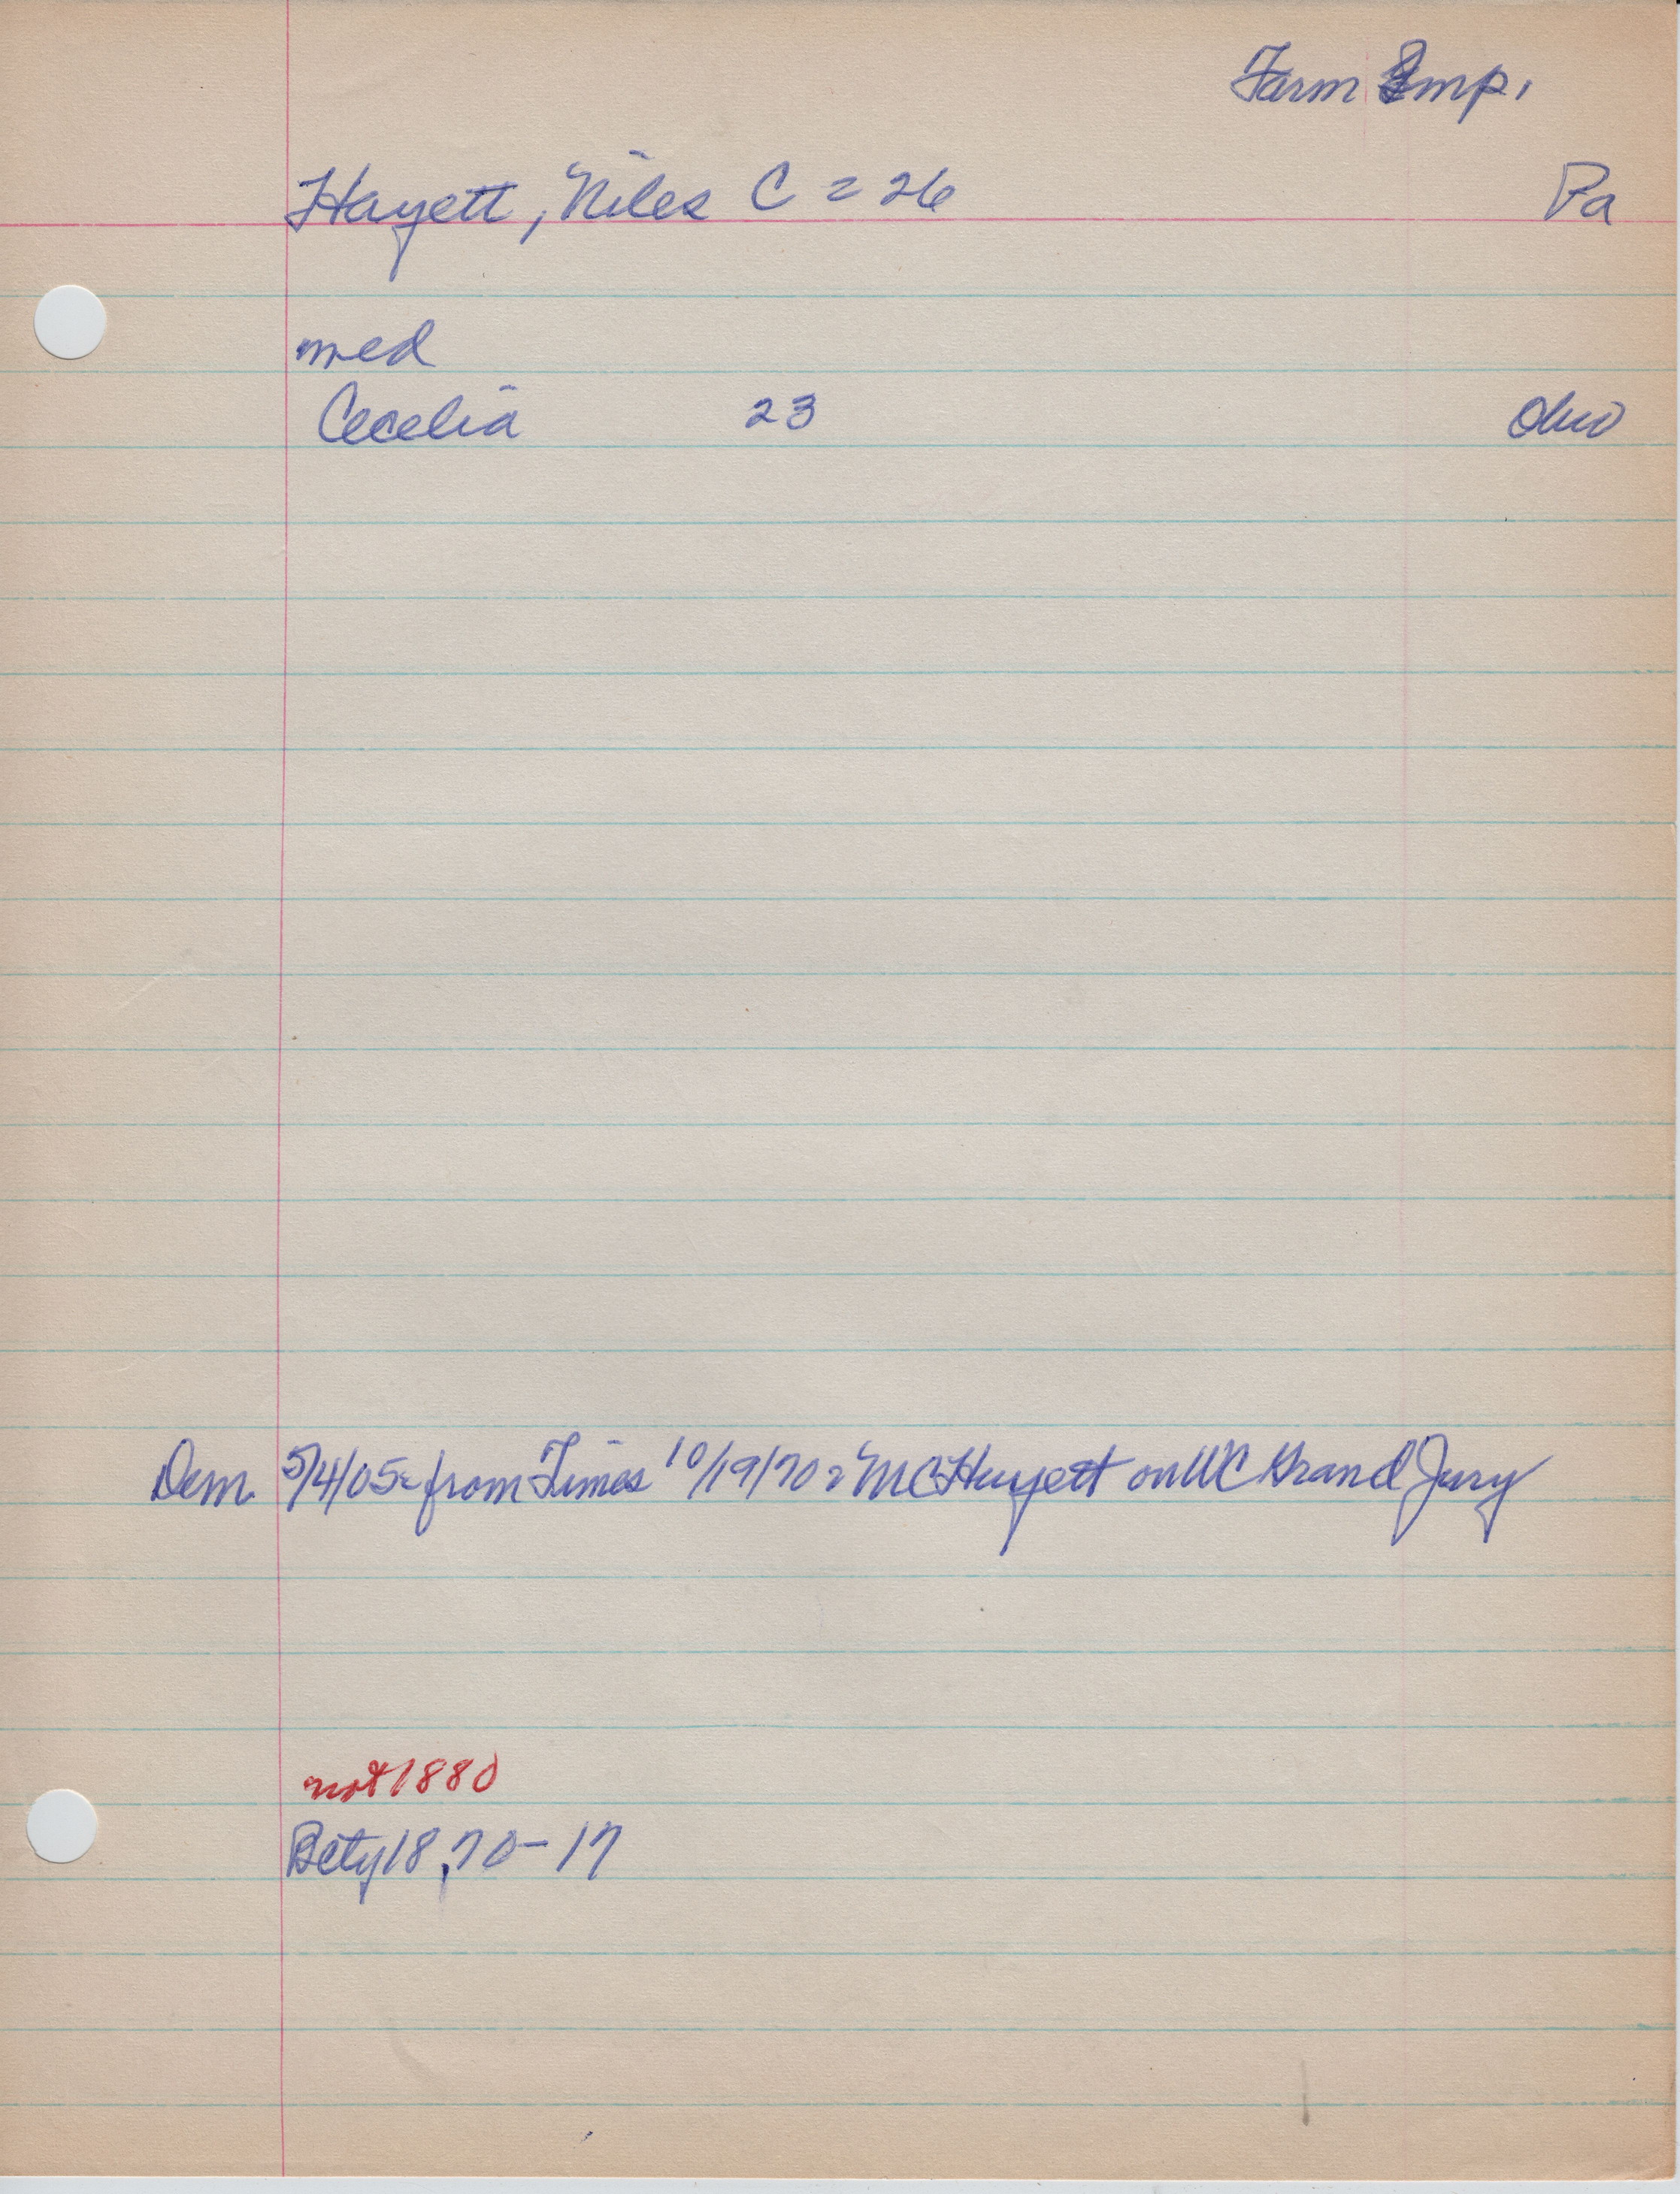 Farm Imp.
Hayett, Niles C = 26 Pa
med
Cecelia 23 Ohio
Dem. 5/4/05 = from Times 10/19/70 = MC Huyett on WC Grand Jury
not 1880
Bcty 18,70-17